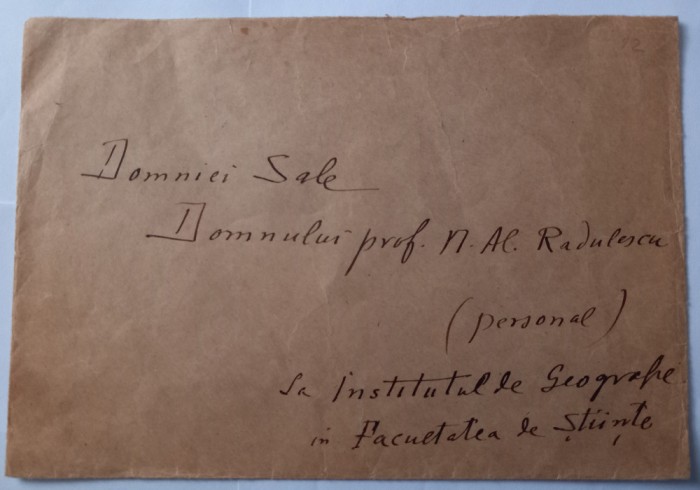 12
Domniei Sale
Domnului prof. N. Al. Radulescu
(personal)
La Institutul de Geografie
in Facultatea de Științe